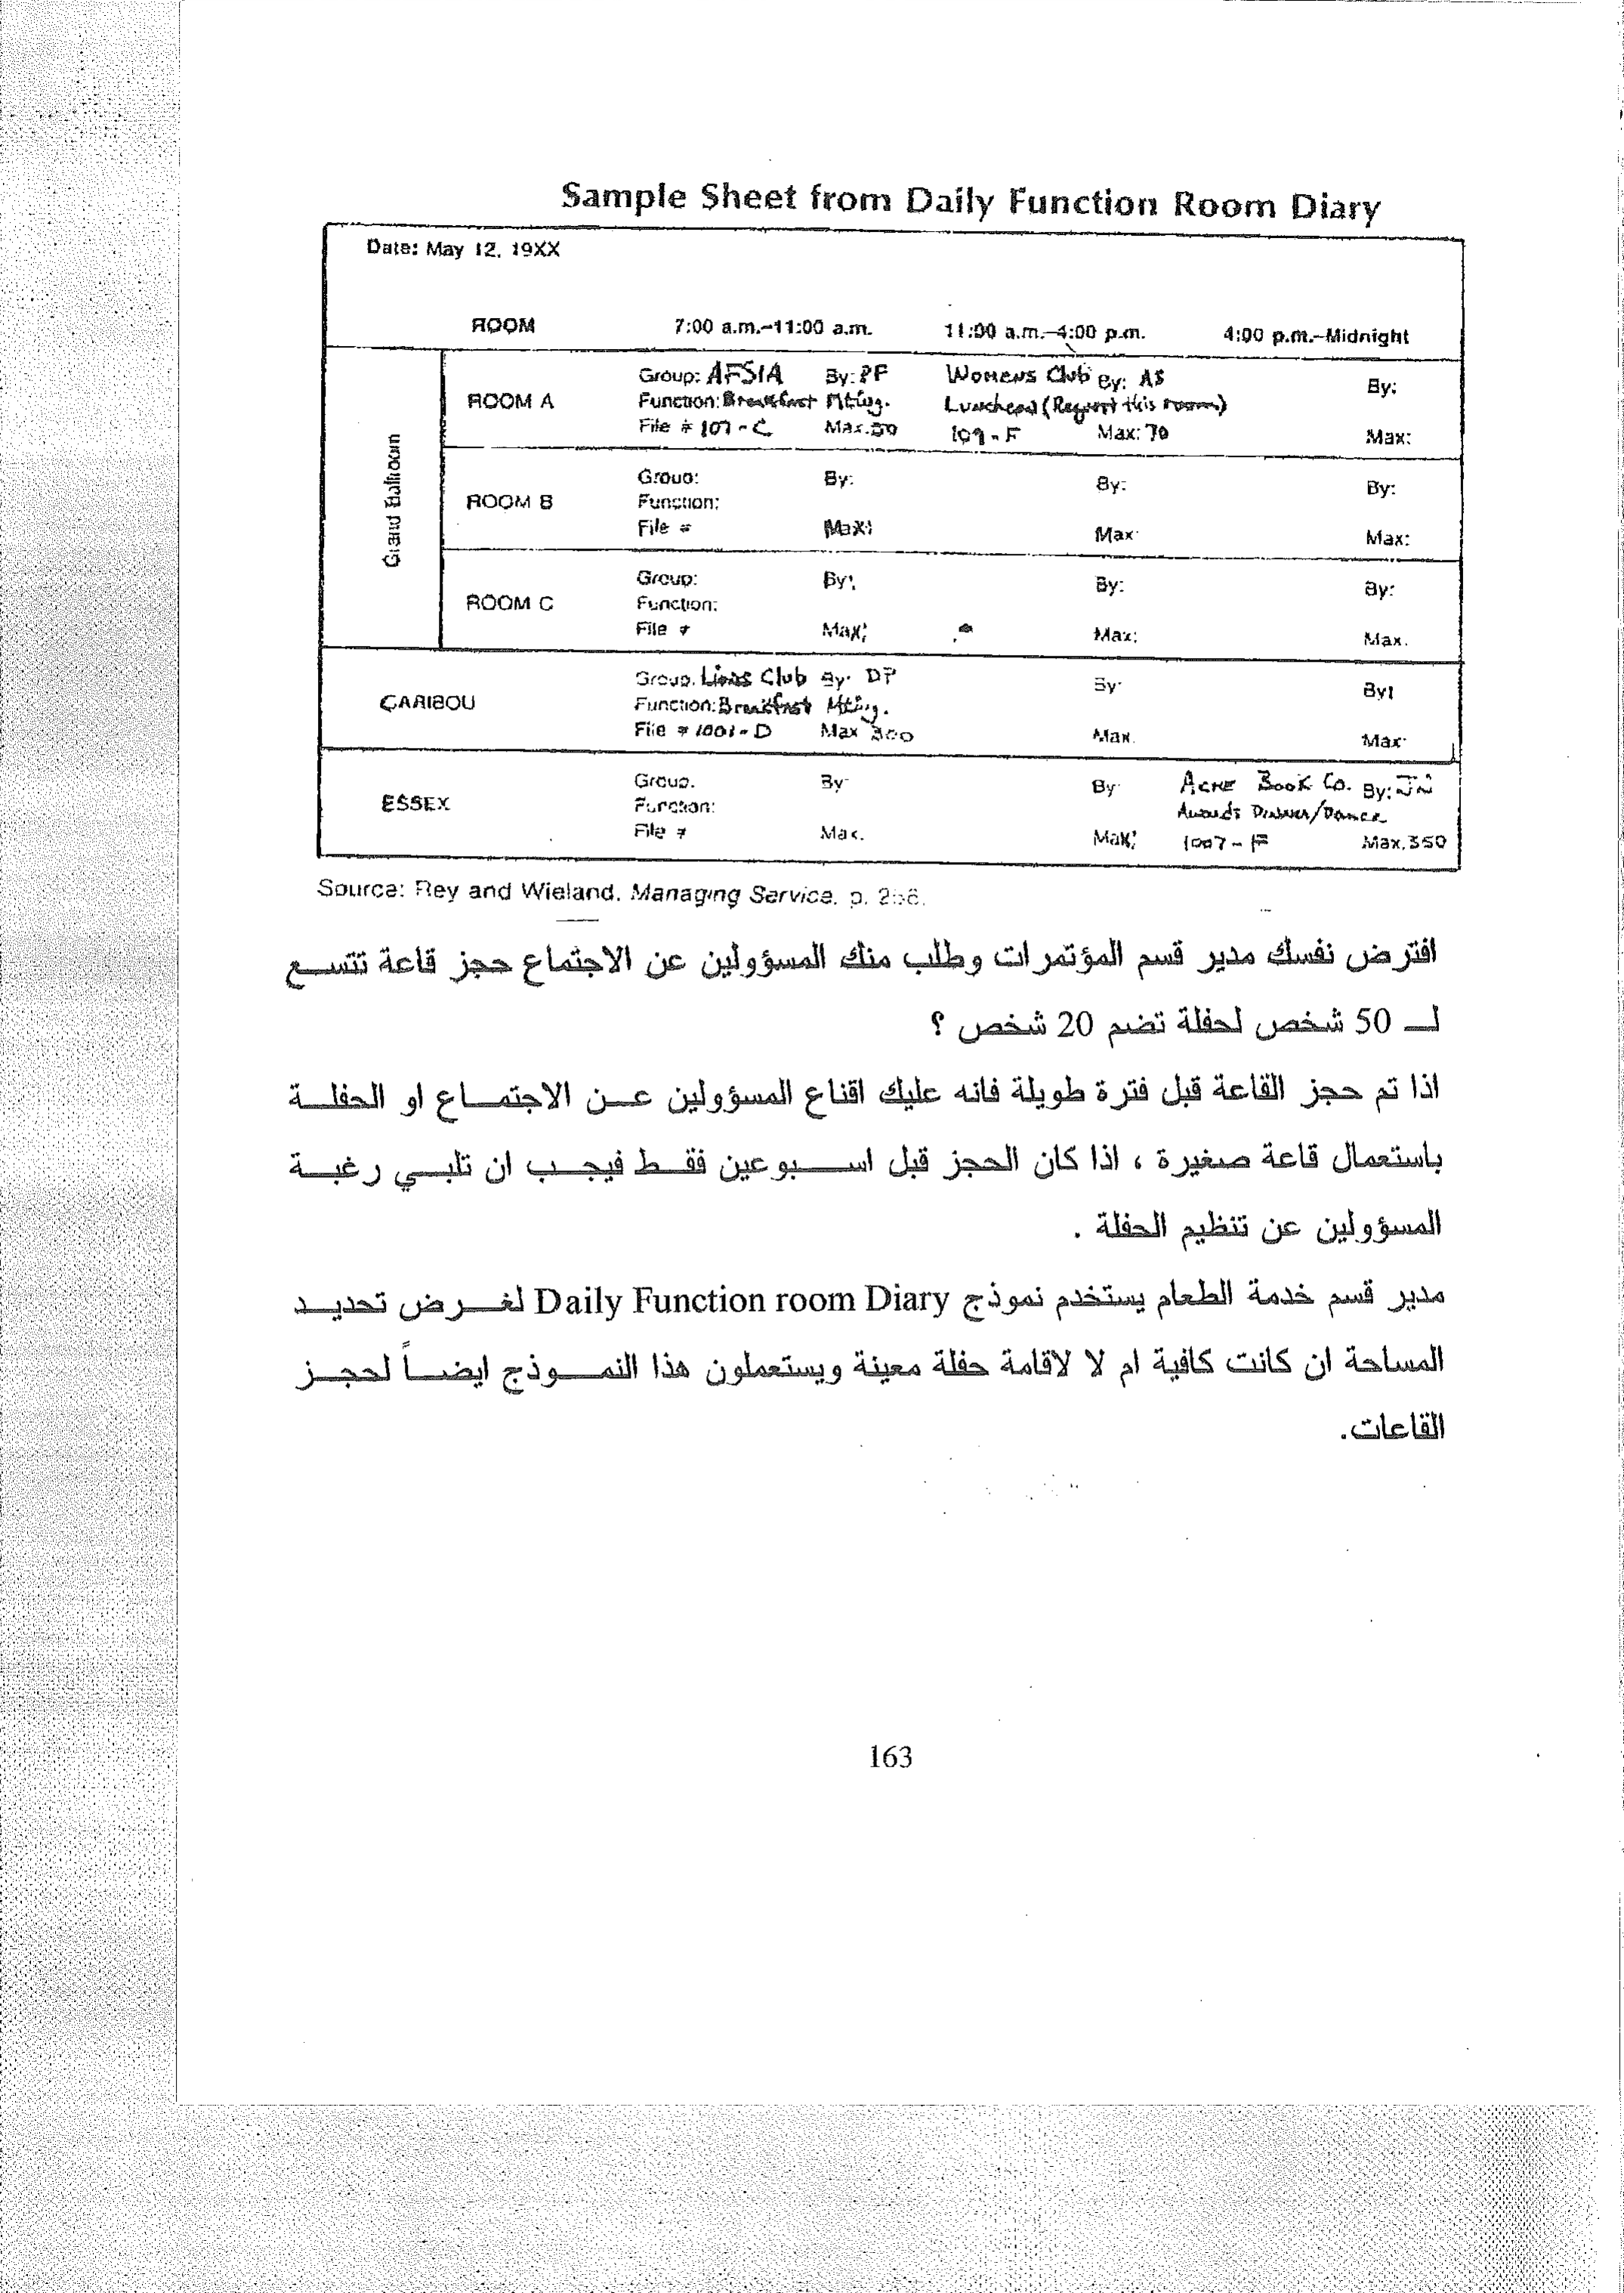 Sample Sheet from Daily Function Room Diary
Date: May 12, 19XX
ROOM 7:00 a.m.–11:00 a.m. 11:00 a.m.–4:00 p.m. 4:00 p.m.–Midnight
Grand Ballroom
Group: AFSIA By: PF Womens Club By: AS By:
ROOM A Function: Breakfast Mtng. Luncheon (Request this room)
File # 107-C Max: 50 109-F Max: 70 Max:
Group: By: By: By:
ROOM B Function:
File # Max: Max: Max:
Group: By: By: By:
ROOM C Function:
File # Max: Max: Max.
Group. Lions Club By: DP By: By:
CARIBOU Function: Breakfast Mtng.
File # 1001-D Max 300 Max. Max:
Group. By: By: Acme Book Co. By: JN
ESSEX Function: Awards Dinner/Dance
File # Max. Max: 1007-F Max. 350
Source: Rey and Wieland. Managing Service. p.
افترض نفسك مدير قسم المؤتمرات وطلب منك المسؤولين عن الاجتماع حجز قاعة تتسع
لـ 50 شخص لحفلة تضم 20 شخص ؟
اذا تم حجز القاعة قبل فترة طويلة فانه عليك اقناع المسؤولين عن الاجتماع او الحفلة
باستعمال قاعة صغيرة ، اذا كان الحجز قبل اسبوعين فقط فيجب ان تلبي رغبة
المسؤولين عن تنظيم الحفلة .
مدير قسم خدمة الطعام يستخدم نموذج Daily Function room Diary لغرض تحديد
المساحة ان كانت كافية ام لا لاقامة حفلة معينة ويستعملون هذا النموذج ايضاً لحجز
القاعات.
163